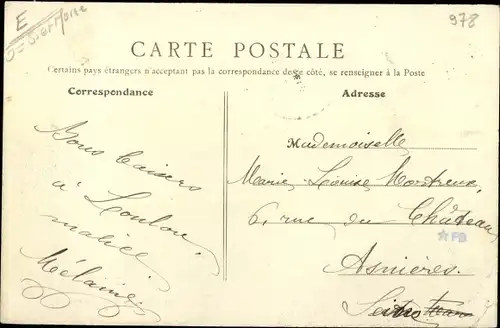 E
978
CARTE POSTALE
Certains pays étrangers n'acceptant pas la correspondance de ce côté, se renseigner à la Poste
Correspondance
Adresse
Bons baisers
à Loulou
malice
Mélanie
Mademoiselle
Marie Louise Mortreux,
6, rue du Château,
FB
Asnières.